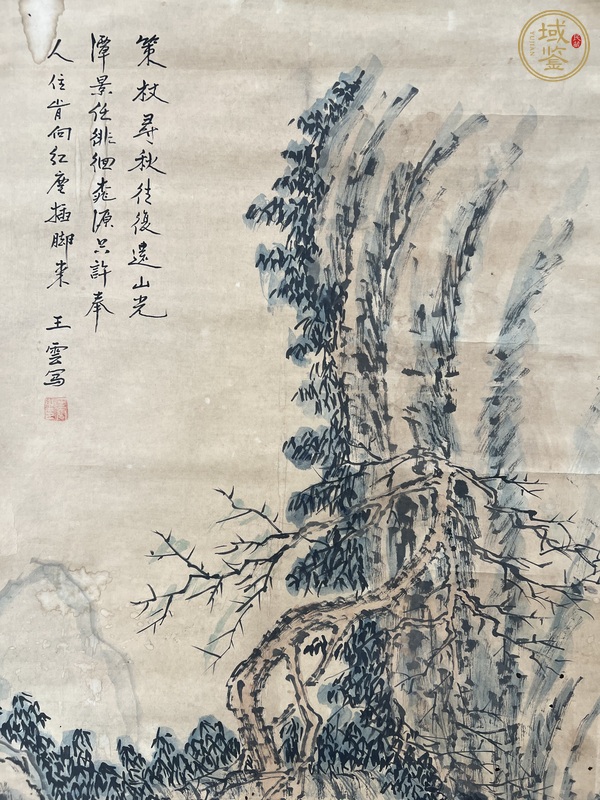 策杖尋秋往復還山光
潭景任徘徊桃源只許奉
人住肯向紅塵插腳來
王雲写
域鉴